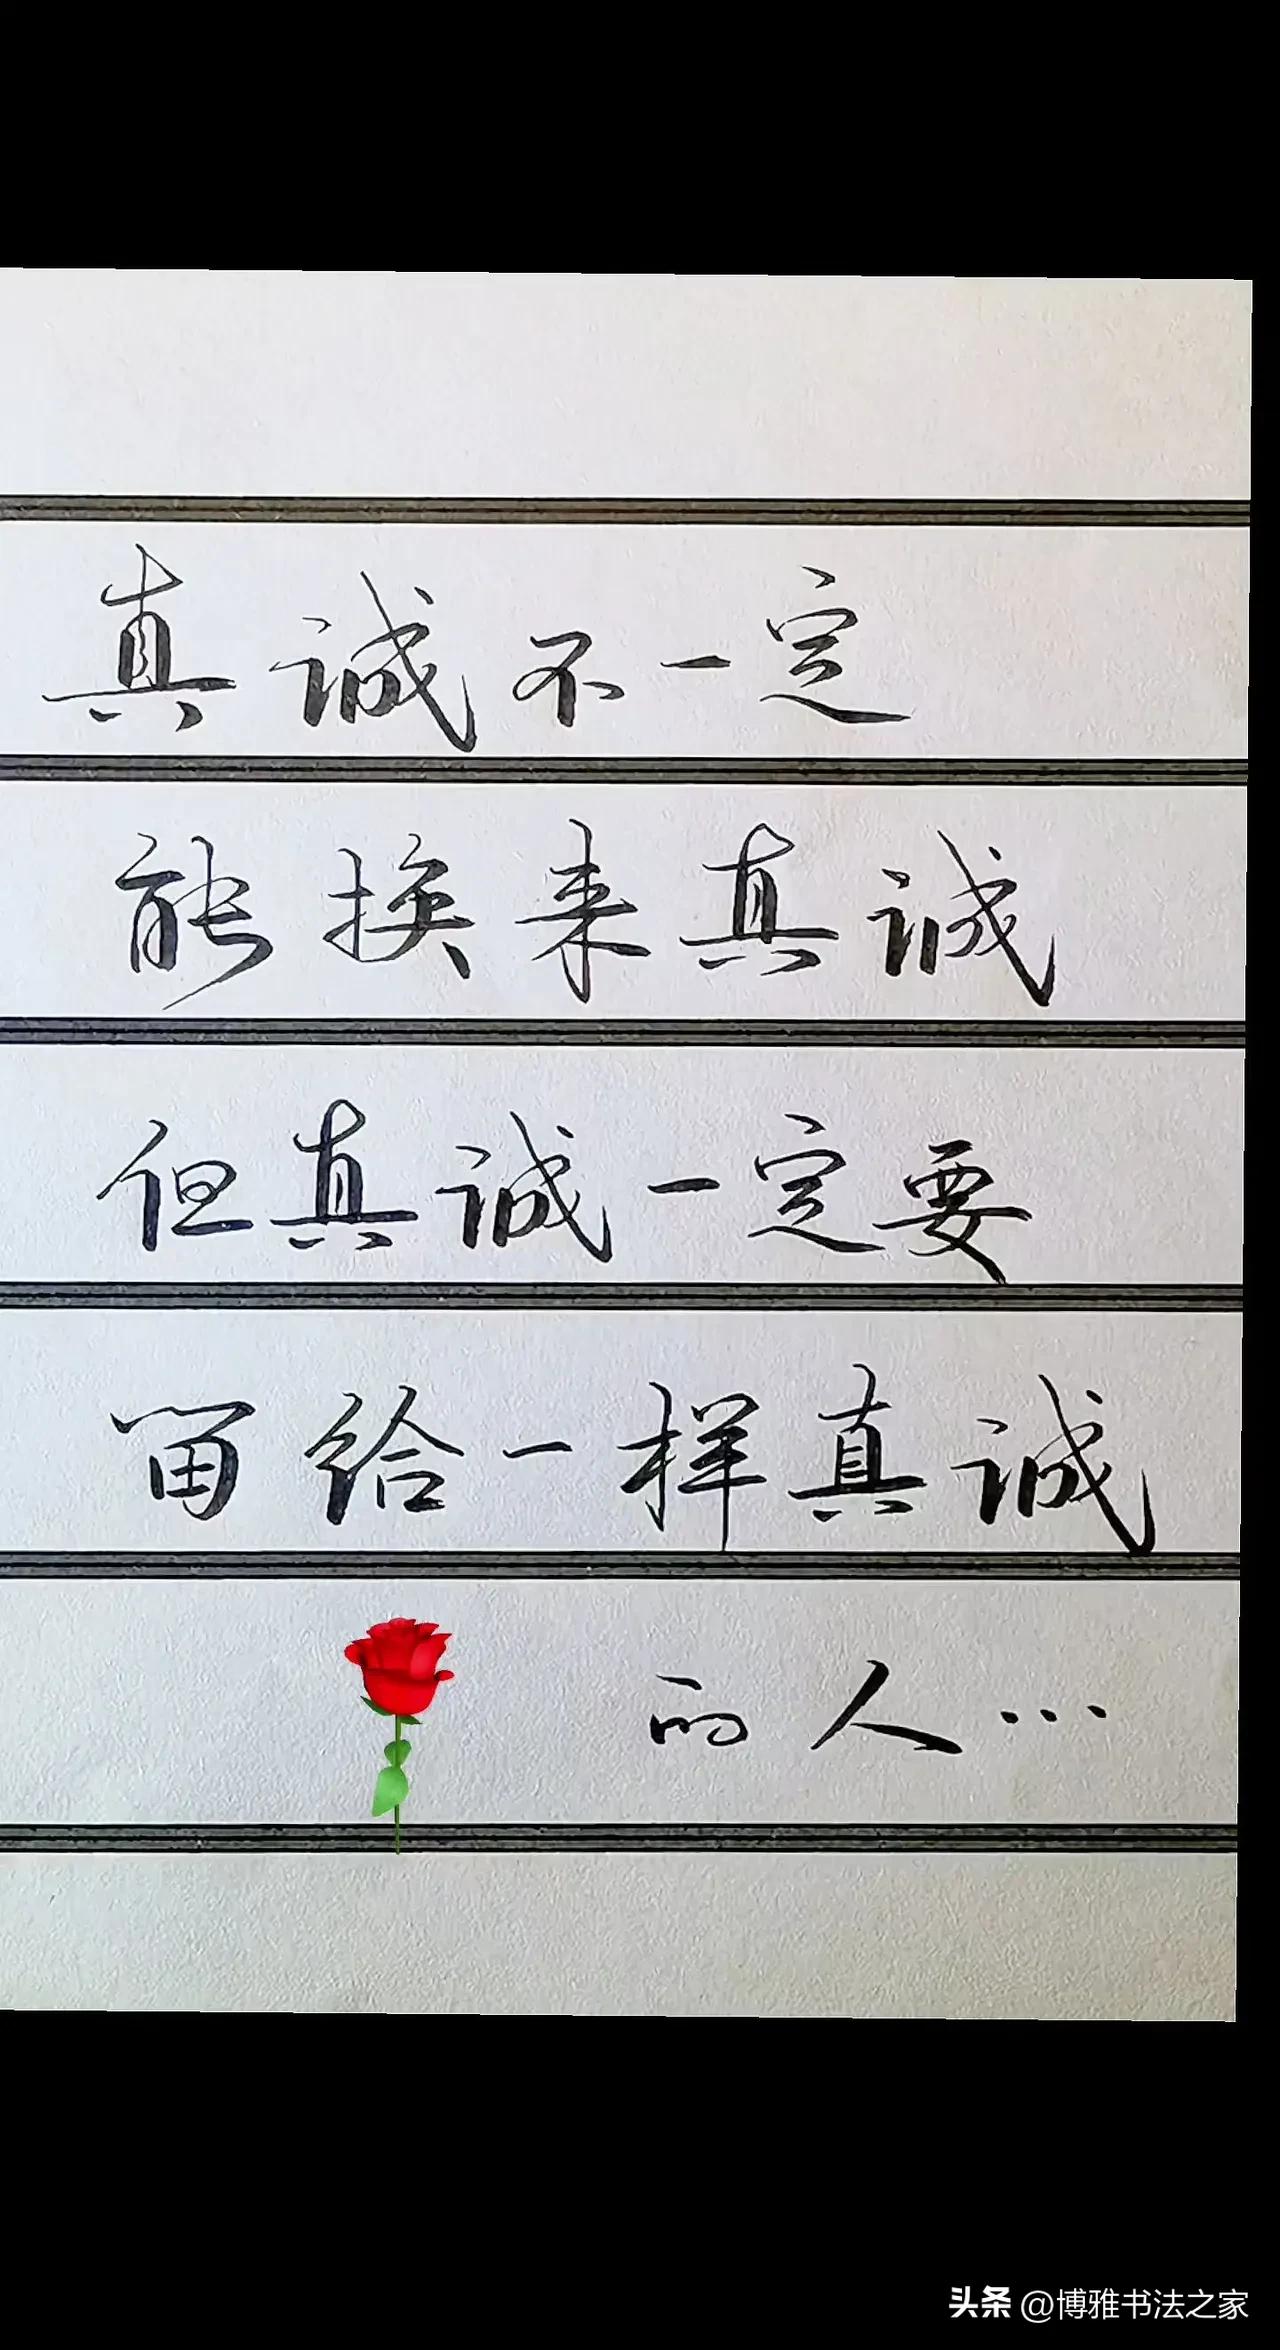 真诚不一定
能换来真诚
但真诚一定要
留给一样真诚
的人…
头条 @博雅书法之家